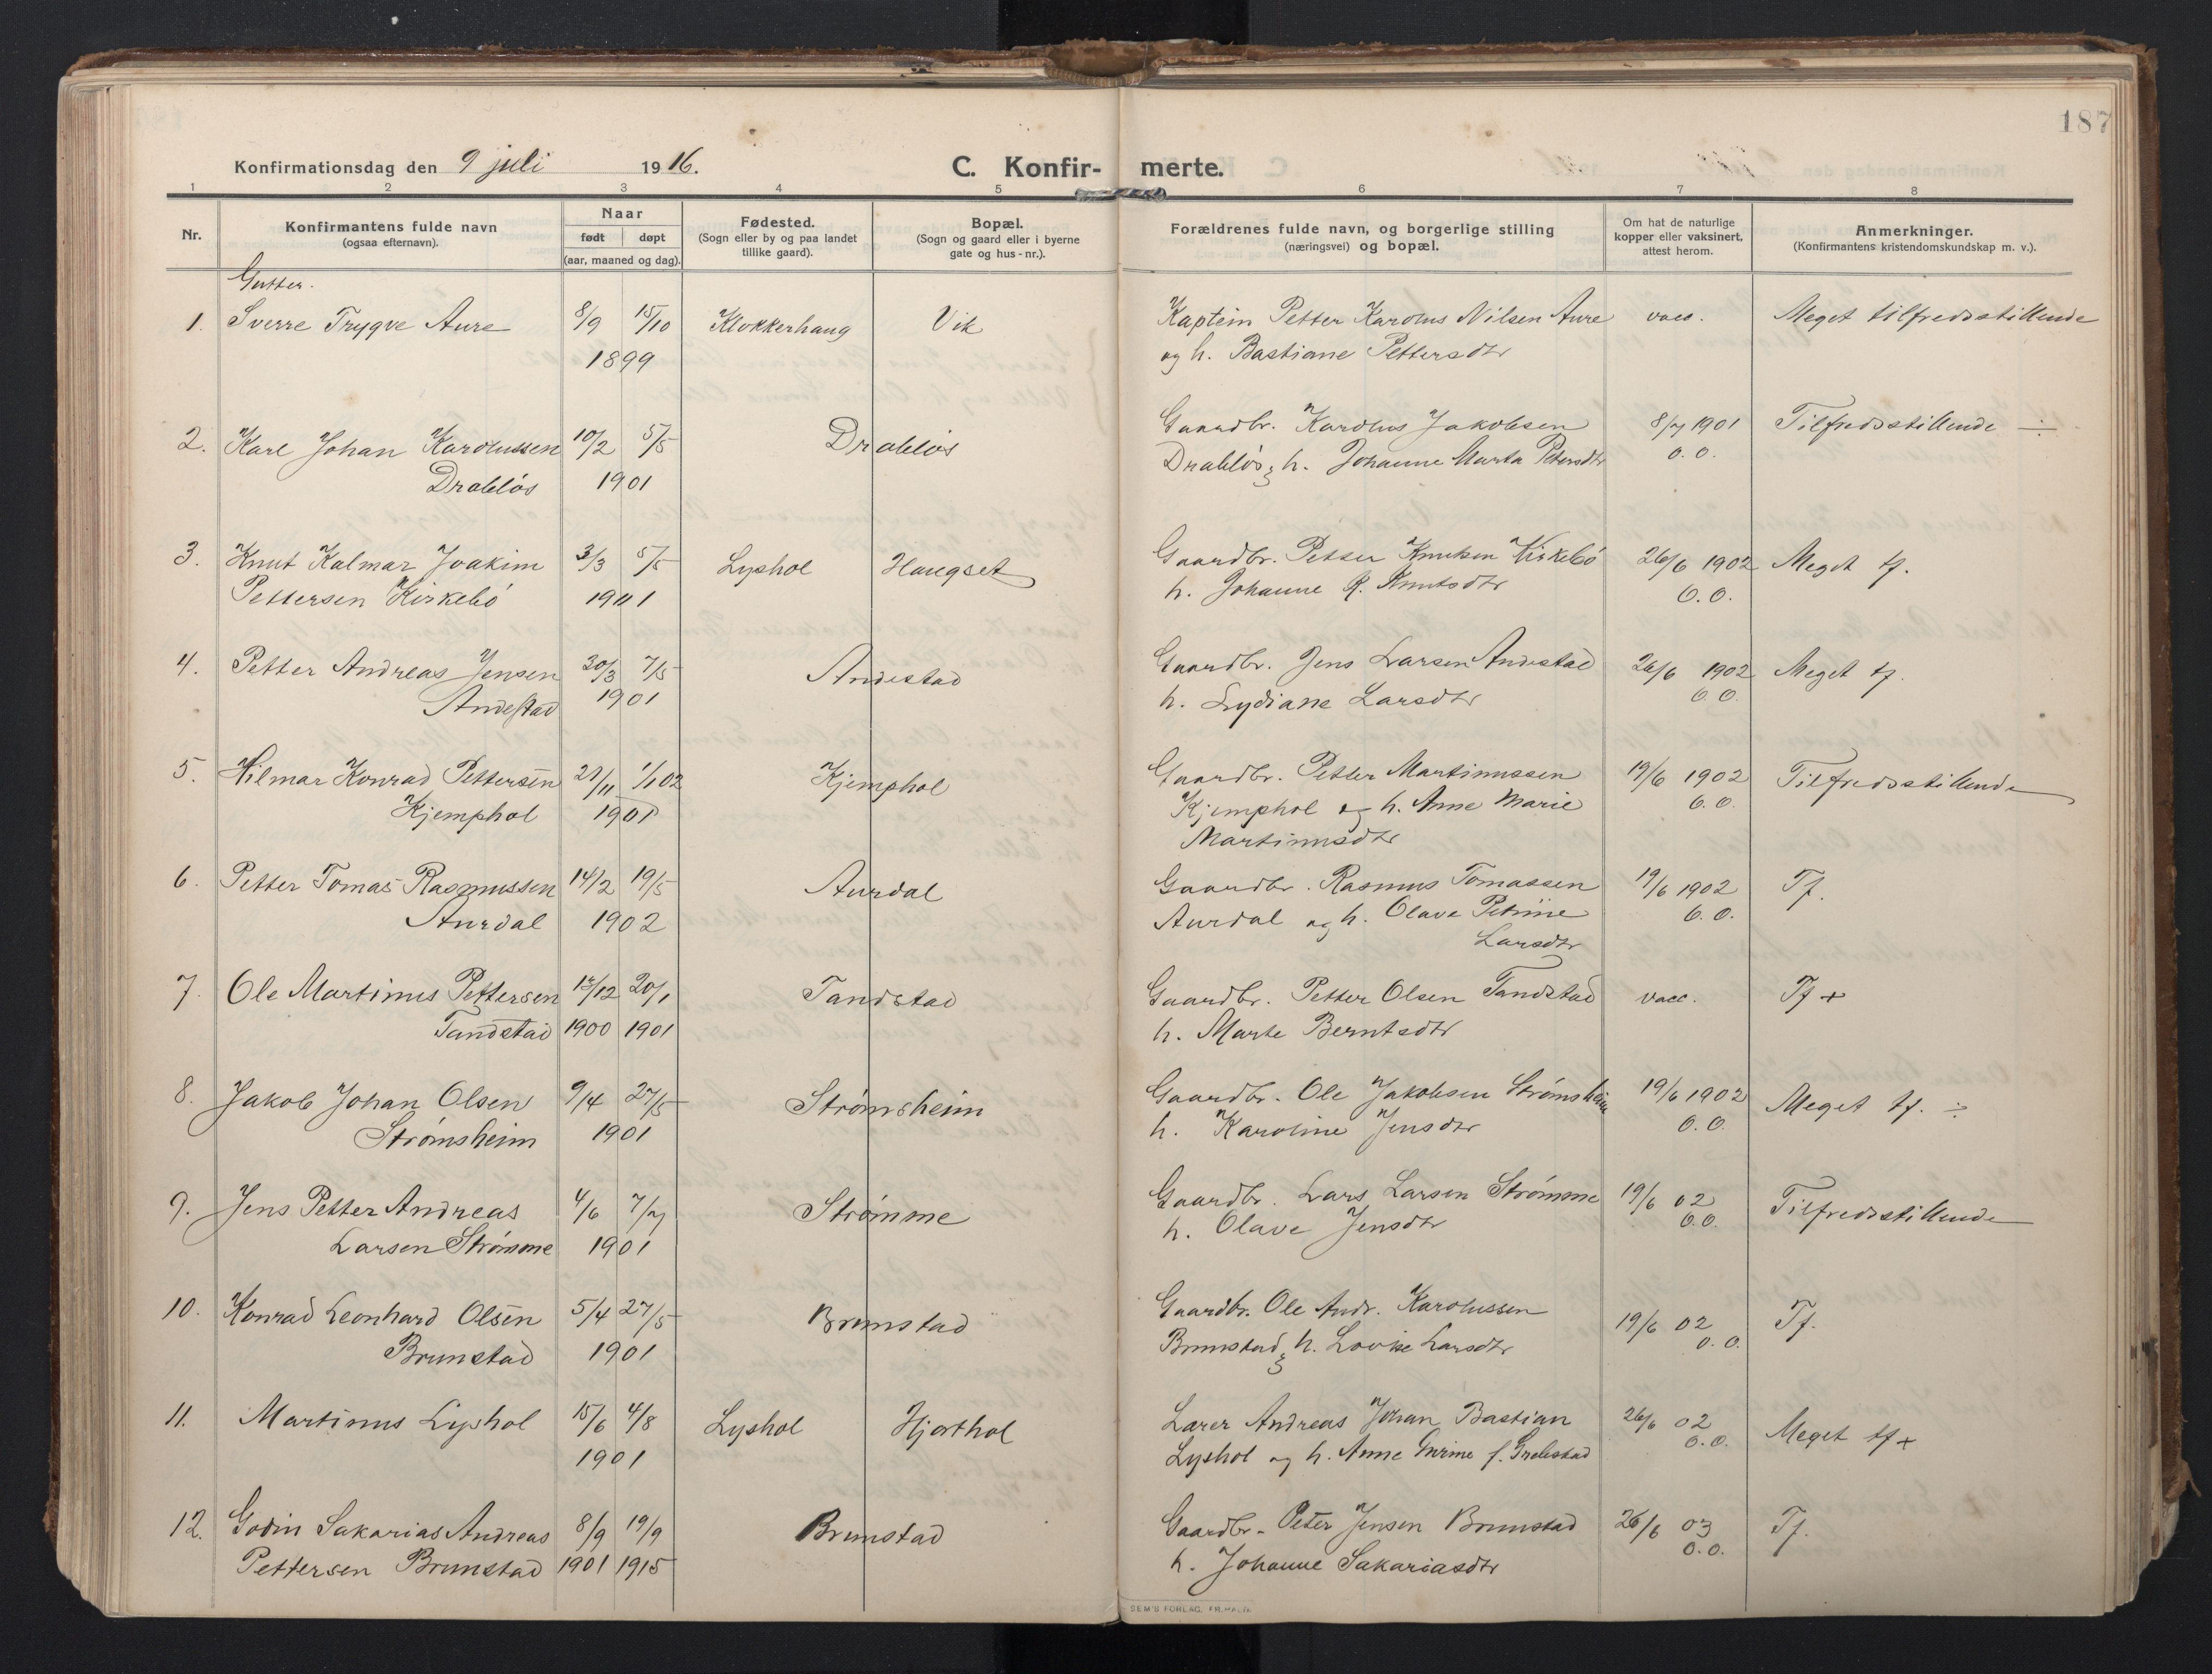 187
Konfirmationsdag den 9 juli 1916.
C. Konfir- merte.
1 2 3 4 5 6 7 8
Nr.
Konfirmantens fulde navn
(ogsaa efternavn).
Naar
født døpt
(aar, maaned og dag).
Fødested.
(Sogn eller by og paa landet
tillike gaard).
Bopæl.
(Sogn og gaard eller i byerne
gate og hus-nr.).
Forældrenes fulde navn, og borgerlige stilling
(næringsvei) og bopæl.
Om hat de naturlige
kopper eller vaksinert,
attest herom.
Anmerkninger.
(Konfirmantens kristendomskundskap m. v.).
Gutter.
1. Sverre Trygve Aure 8/9 15/10 Klokkerhaug Vik Kaptein Petter Karolus Nilsen Aure vacc. Meget tilfredsstillende
1899 og h. Bastiane Pettersdtr
2. Karl Johan Karolussen 10/2 5/5 Drabløs Gaardbr. Karolus Jakobsen 8/7 1901 Tilfredsstillende ÷
Drabløs 1901 Drabløs & h. Johanne Marta Petersdtr o.o.
3. Knut Kalmar Joakim 3/3 5/5 Lyshol Haugset Gaardbr. Petter Knutsen Kirkebø 26/6 1902 Meget tf.
Pettersen Kirkebø 1901 h. Johanne K. Knutsdtr o.o.
4. Petter Andreas Jensen 30/3 7/5 Andestad Gaardbr. Jens Larsen Andestad 26/6 1902 Meget tf.
Andestad 1901 h. Lydiane Larsdtr o.o.
5. Hilmar Konrad Pettersen 21/11 1/1 02 Kjemphol Gaardbr. Petter Martinussen 19/6 1902 Tilfredsstillende
Kjemphol 1901 Kjemphol og h. Anne Marie o.o.
Martinusdtr
6. Petter Tomas Rasmussen 14/2 19/5 Aurdal Gaardbr. Rasmus Tomassen 19/6 1902 Tf.
Aurdal 1902 Aurdal og h. Olave Petrine o.o.
Larsdtr
7. Ole Martinus Pettersen 12/12 20/1 Tandstad Gaardbr. Petter Olsen Tandstad vacc. Tf +
Tandstad 1900 1901 h. Marte Berntsdtr
8. Jakob Johan Olsen 9/14 27/5 Strømsheim Gaardbr. Ole Jakobsen Strømsheim 19/6 1902 Meget tf. ÷
Strømsheim 1901 h. Karoline Jensdtr o.o.
9. Jens Petter Andreas 4/6 7/7 Strømme Gaardbr. Lars Larsen Strømme 19/6 02 Tilfredsstillende
Larsen Strømme 1901 h. Olave Jensdtr o.o.
10. Konrad Leonhard Olsen 5/4 27/5 Brunstad Gaardbr. Ole Andr. Karolussen 19/6 02 Tf.
Brunstad 1901 Brunstad & h. Lovise Larsdtr o.o.
11. Martinus Lyshol 15/6 4/8 Lyshol Hjorthol Lærer Andreas Johan Bastian 26/6 02 Meget tf +
1901 Lyshol og h. Anne f. Grebstad o.o.
12. Godin Sakarias Andreas 8/9 19/9 Brunstad Gaardbr. Peter Jensen Brunstad 26/6 03 Tf.
Pettersen Brunstad 1901 1915 h. Johanne Sakariasdtr o.o.
SEM'S FORLAG. FR.HALD.